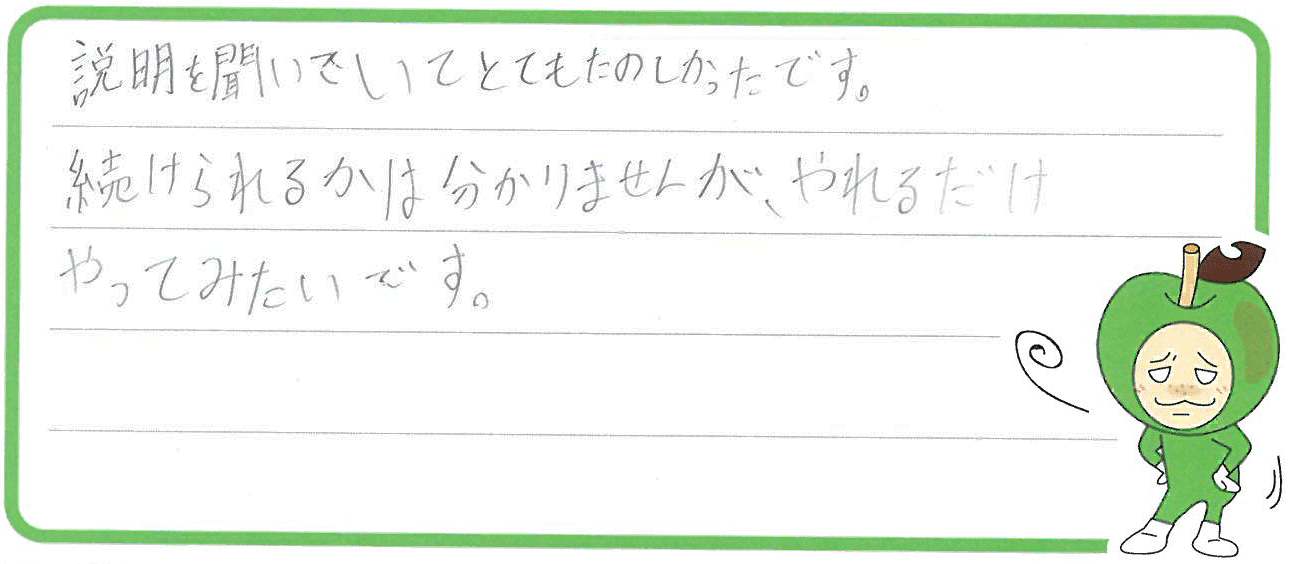 説明を聞いでいてとてもたのしかったです。
続けられるかは分かりませんが、やれるだけ
やってみたいです。